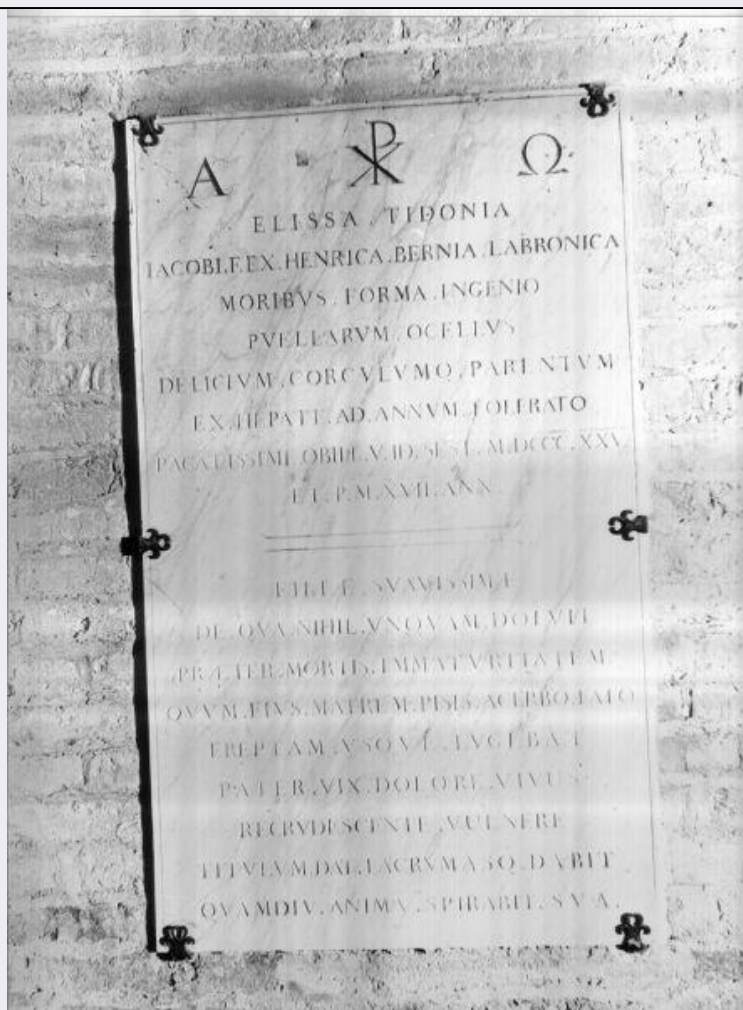 Α ☧ Ω
ELISSA . TIDONIA
IACOBI . F . EX . HENRICA . BERNIA . LABRONICA
MORIBVS . FORMA . INGENIO
PVELLARVM . OCELLVS
DELICIVM . CORCVLVMQ . PARENTVM
EX . HEPATE . AD . ANNVM . TOLERATO
PACATISSIME . OBIIT . V . ID . SEXT . M . DCCC . XXV
ET . P . M . XVII . ANN .
FILIÆ . SVAVISSIMÆ
DE . QVA . NIHIL . VNQVAM . DOLVIT
PRÆTER . MORTIS . IMMATVRITATEM
QVVM . EIVS . MATREM . PISIS . ACERBO . FATO
EREPTAM . VSQVE . LVGEBAT
PATER . VIX . DOLORE . VIVVS
RECRVDESCENTE . VVLNERE
TITVLVM . DAT . LACRVMASQ . DABIT
QVAMDIV . ANIMA . SPIRABIT . SVA .